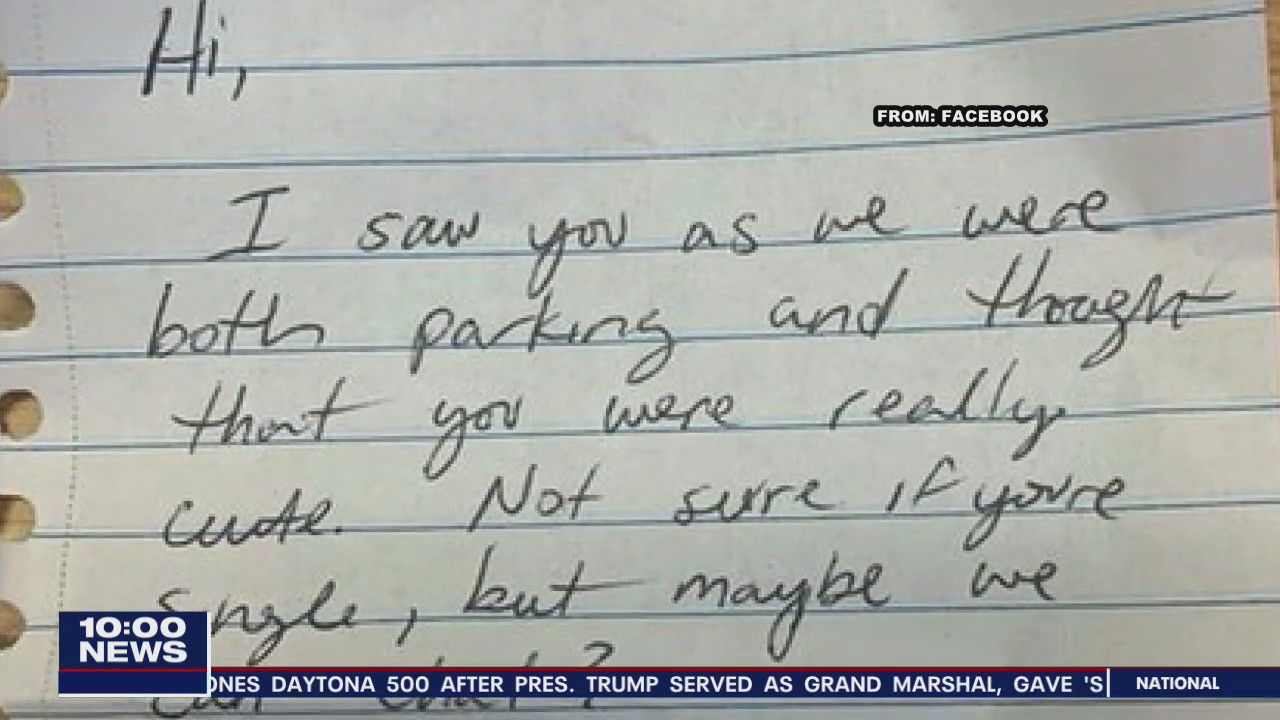 Hi,
FROM: FACEBOOK
I saw you as we were
both parking and thought
that you were really
cute. Not sure if you're
single, but maybe we
can chat?
10:00
NEWS
ONES DAYTONA 500 AFTER PRES. TRUMP SERVED AS GRAND MARSHAL, GAVE 'S
NATIONAL